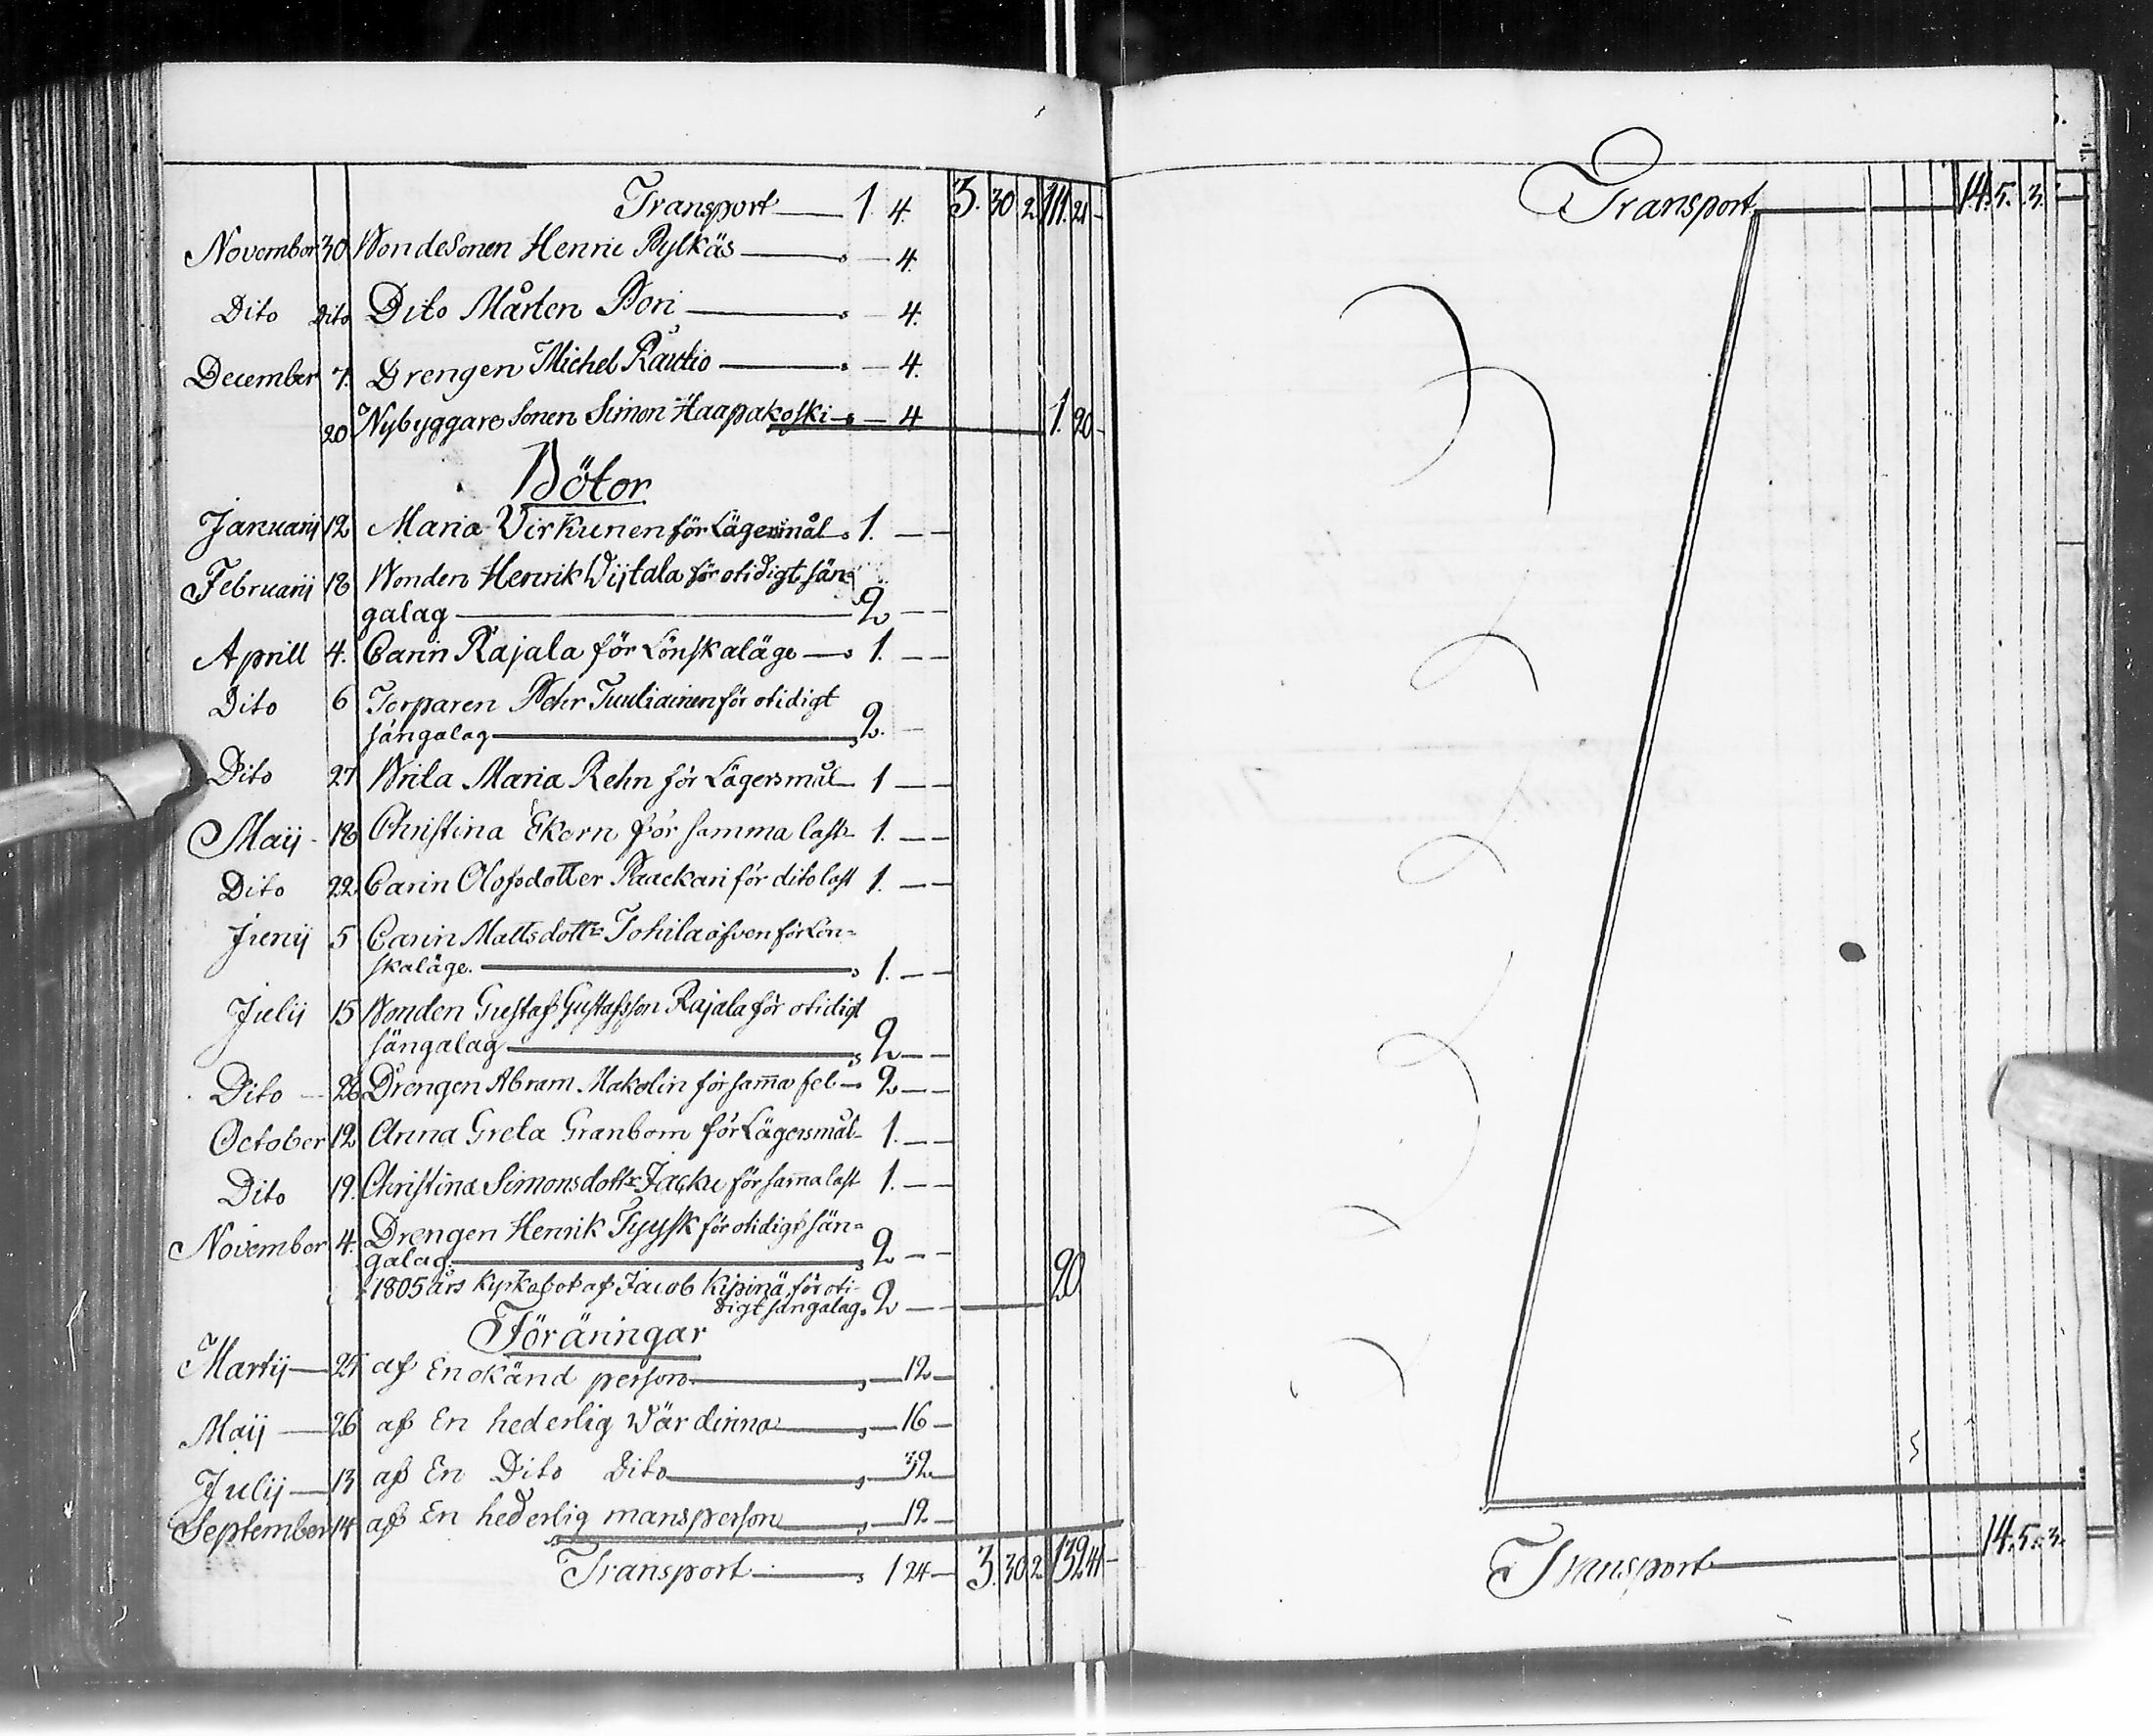 Transport — 1. 4. 3. 30 2 111. 21 —
November 30 Bondesonen Henric Pylkäs — 4.
Dito Dito Dito Mårten Pori — 4.
December 7. Drengen Michel Rautio — 4.
20 Nybyggare sonen Simon Haapakoski — 4 1. 20 —
Böter
Januarij 12 Maria Virkunen för Lägersmål 1. — —
Februarij 18 Bonden Henrik Wijtala för otidigt sän=
galag — 2 — —
Aprill 4. Carin Rajala för Lönskaläge — 1. — —
Dito 6 Torparen Pehr Tuuliainen för otidigt
sängalag — 2. —
Dito 27 Brita Maria Rehn för Lägersmål 1 — —
Maij 18 Christina Ekorn för samma last 1. — —
Dito 22 Carin Olofsdotter Paackari för dito last 1. — —
Junij 5 Carin Mattsdottr Tohila äfven för Lön=
skaläge. — 1. — —
Julij 15 Bonden Gustaf Gustafsson Rajala för otidigt
sängalag — 2 — —
Dito 26 Drengen Abram Makolin för samma fel — 2 — —
October 12 Anna Greta Granbom för Lägersmål 1. — —
Dito 19. Christina Simonsdottr Jacku för samma last 1. — —
November 4. Drengen Henrik Tyysk för otidigt sän=
galag. — 2 — —
1805 års kyrkobot af Jacob Kipinä för oti-
digt sängalag. 2 — — 20
Föräringar
Martij — 25 af En okänd person — 12 —
Maij — 26 af En hederlig Värdinna — 16 —
Julij — 13 af En Dito Dito — 32 —
September 14 af En hederlig mansperson — 12 —
Transport — 1 24 — 3. 30 2 132 41 —
Transport — 14. 5. 3.
Transport — 14. 5. 3.